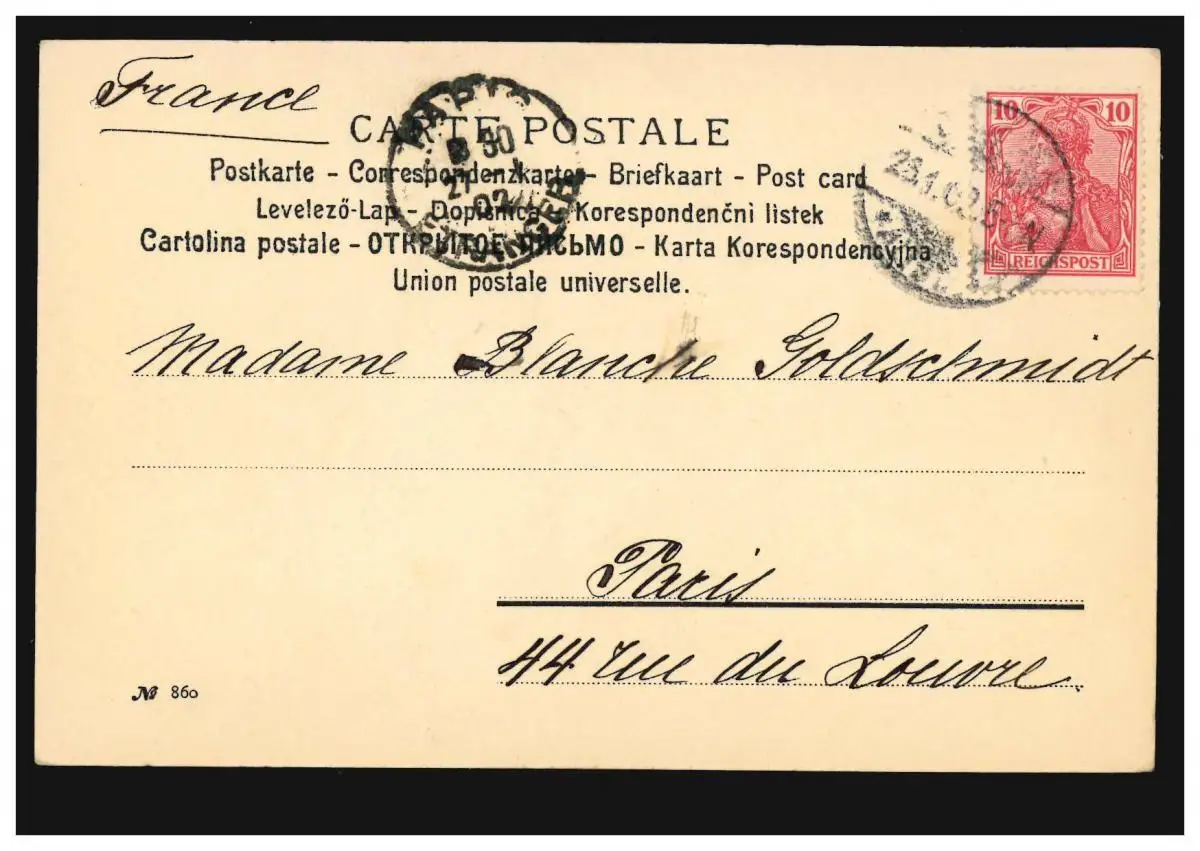 France
CARTE POSTALE
Postkarte - Correspondenzkarte - Briefkaart - Post card
Levelező-Lap - Dopisnica - Korespondenční listek
Cartolina postale - ОТКРЫТОЕ ПИСЬМО - Karta Korespondencyjna
Union postale universelle.
PARIS
8 30
27
02
ETRANGER
10 10
REICHSPOST
Madame Blanche Goldschmidt
Paris
44 rue du Louvre
№ 860